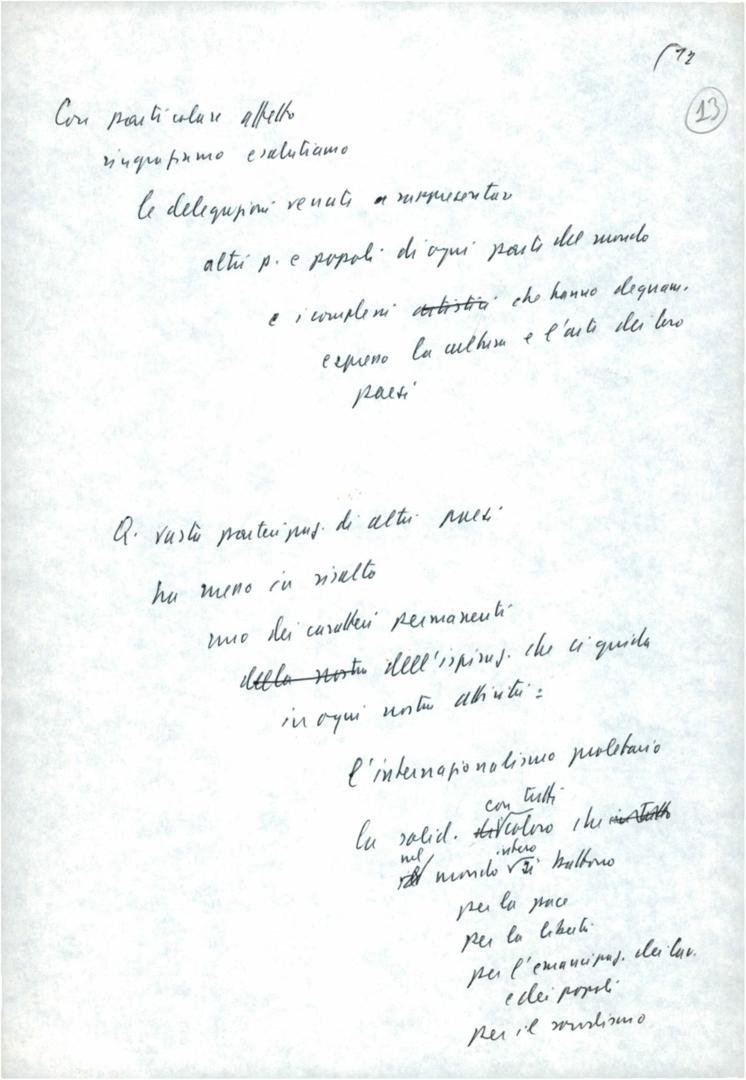 13
Con particolare affetto
ringraziamo e salutiamo
le delegazioni venute a rappresentare
altri p. e popoli di ogni parte del mondo
e i complessi artistici che hanno degnam.
espresso la cultura e l'arte dei loro
paesi
Q. vasta partecipaz. di altri paesi
ha messo in risalto
uno dei caratteri permanenti
della nostra dell'ispiraz. che ci guida
in ogni nostra attività:
l'internazionalismo proletario
con tutti
la solid. coloro che in tutto
nel intero
mondo si battono
per la pace
per la libertà
per l'emancipaz. dei lav.
e dei popoli
per il socialismo